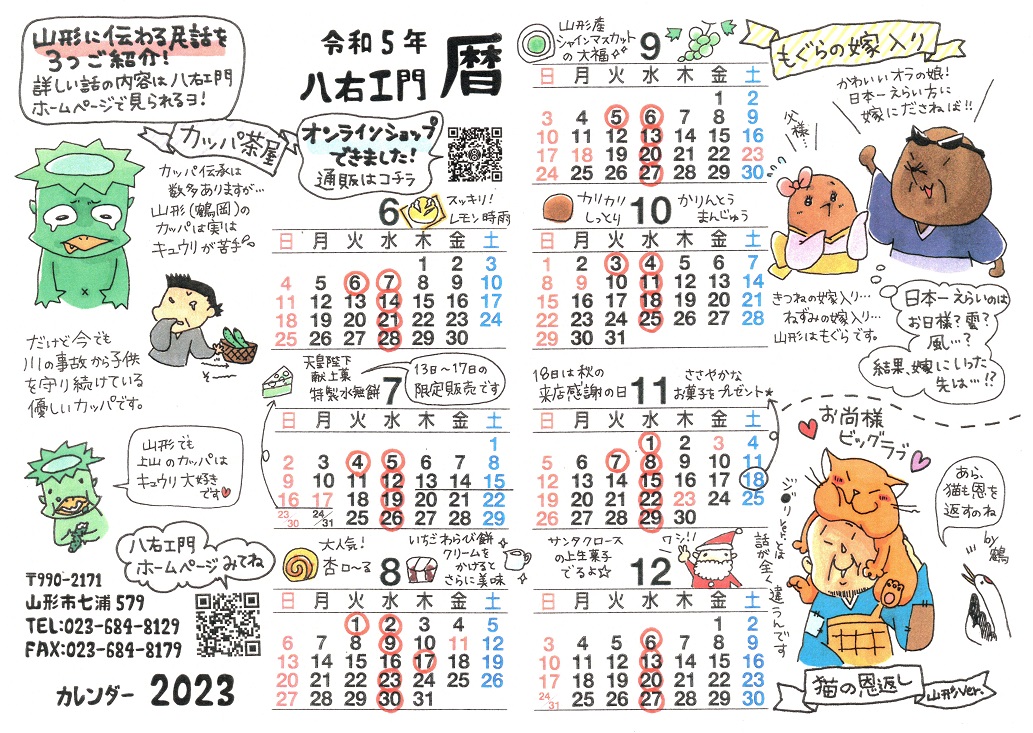 山形に伝わる民話を
3つご紹介!
詳しい話の内容は八右エ門
ホームページで見られるヨ!
令和5年
八右エ門
暦
カッパ茶屋
オンラインショップ
できました!
通販はコチラ
カッパ伝承は
数多ありますが…
山形(鶴岡)の
カッパは実は
キュウリが苦手。
だけど今でも
川の事故から子供
を守り続けている
優しいカッパです。
山形でも
上山のカッパは
キュウリ大好き
です♥
八右エ門
ホームページみてね
〒990-2171
山形市七浦579
TEL:023-684-8129
FAX:023-684-8179
カレンダー 2023
6
スッキリ!
レモン時雨
日 月 火 水 木 金 土
1 2 3
4 5 6 7 8 9 10
11 12 13 14 15 16 17
18 19 20 21 22 23 24
25 26 27 28 29 30
天皇陛下
献上菓
特製水無餅
7
13日〜17日の
限定販売です
日 月 火 水 木 金 土
1
2 3 4 5 6 7 8
9 10 11 12 13 14 15
16 17 18 19 20 21 22
23/30 24/31 25 26 27 28 29
大人気!
杏ロ〜る
8
いちごわらび餅
クリームを
かけると
さらに美味
日 月 火 水 木 金 土
1 2 3 4 5
6 7 8 9 10 11 12
13 14 15 16 17 18 19
20 21 22 23 24 25 26
27 28 29 30 31
山形産
シャインマスカット
の大福
9
日 月 火 水 木 金 土
1 2
3 4 5 6 7 8 9
10 11 12 13 14 15 16
17 18 19 20 21 22 23
24 25 26 27 28 29 30
カリカリ
しっとり
10
かりんとう
まんじゅう
日 月 火 水 木 金 土
1 2 3 4 5 6 7
8 9 10 11 12 13 14
15 16 17 18 19 20 21
22 23 24 25 26 27 28
29 30 31
18日は秋の
来店感謝の日
11
ささやかな
お菓子をプレゼント★
日 月 火 水 木 金 土
1 2 3 4
5 6 7 8 9 10 11
12 13 14 15 16 17 18
19 20 21 22 23 24 25
26 27 28 29 30
サンタクロース
の上生菓子
でるよ☆
12
ワシ!!
日 月 火 水 木 金 土
1 2
3 4 5 6 7 8 9
10 11 12 13 14 15 16
17 18 19 20 21 22 23
24/31 25 26 27 28 29 30
もぐらの嫁入り
かわいいオラの娘!
日本一えらい方に
嫁にださねば!!
父様…
きつねの嫁入り…
ねずみの嫁入り…
山形はもぐらです。
日本一えらいのは
お日様?雲?
風…?
結果、嫁にいった
先は…!?
お尚様
ビッグラブ
あら、
猫も恩を
返すのね
by鶴
ジブリとは
話が全く違うんです
猫の恩返し
山形ver.